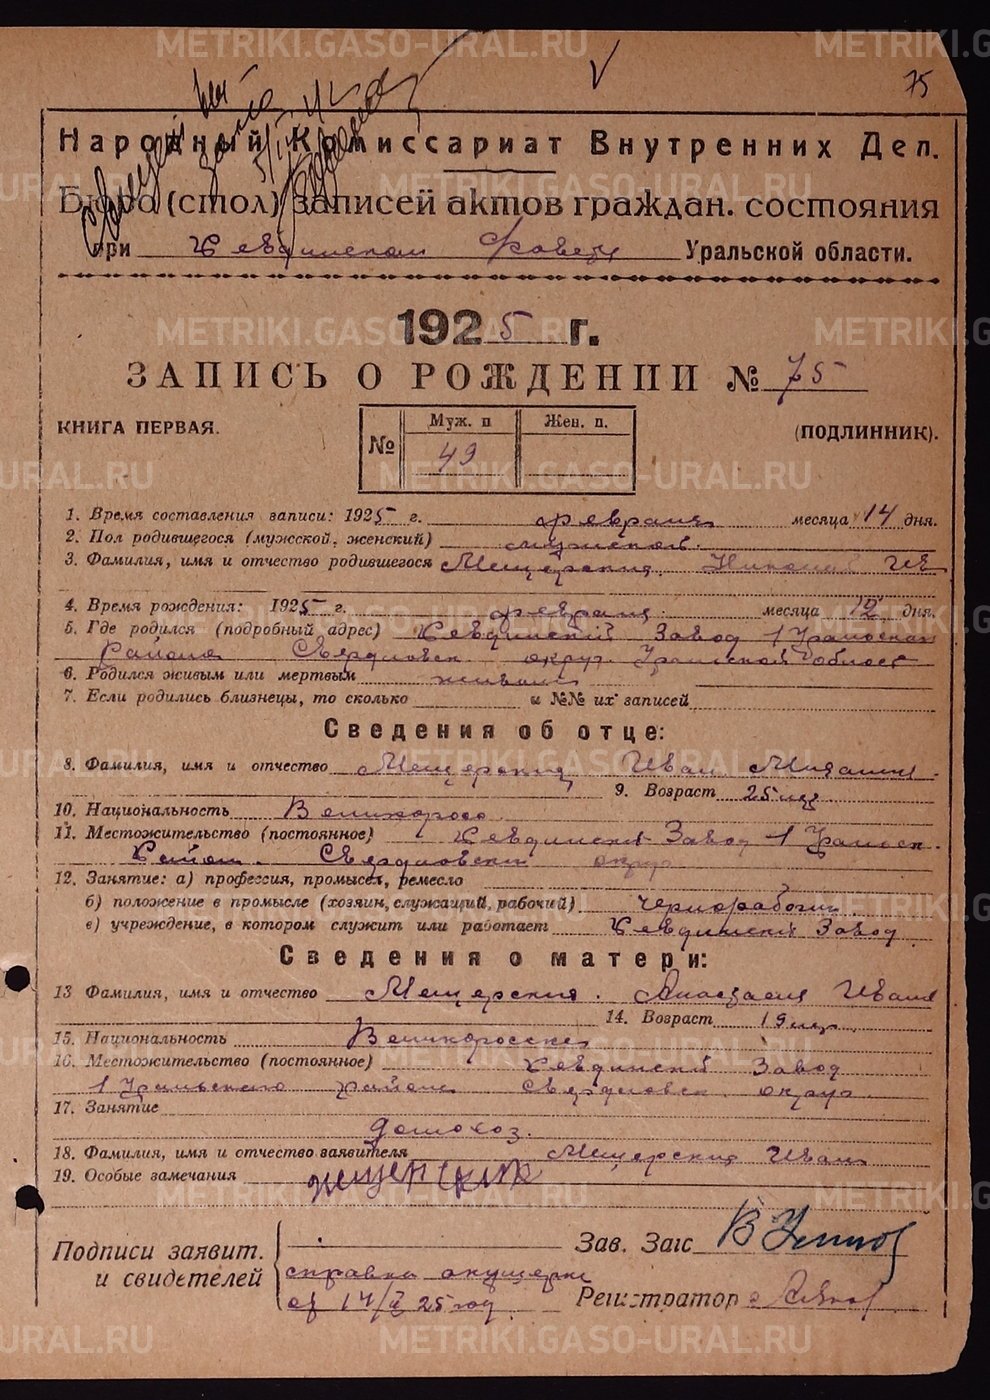 75
Народный Комиссариат Внутренних Дел.
Бюро (стол) записей актов граждан. состояния
при Уральской области.
1925 г.
ЗАПИСЬ О РОЖДЕНИИ № 75
КНИГА ПЕРВАЯ.
(ПОДЛИННИК).
№ Муж. п Жен. п.
49
1. Время составления записи: 1925 г. февраля месяца 14 дня.
2. Пол родившегося (мужской, женский) мужской.
3. Фамилия, имя и отчество родившегося Мещерский Николай Ив
4. Время рождения: 1925 г. февраля месяца 12 дня.
5. Где родился (подробный адрес) Завод 1 Уральская
Района Свердловск. округ. Уральской област
6. Родился живым или мертвым живым
7. Если родились близнецы, то сколько и №№ их записей
Сведения об отце:
8. Фамилия, имя и отчество Мещерский Иван
9. Возраст 25 лет
10. Национальность Великоросс
11. Местожительство (постоянное) Завод 1 Уральск.
Район. Свердловский округ
12. Занятие: а) профессия, промысел, ремесло
б) положение в промысле (хозяин, служащий, рабочий) чернорабочий
в) учреждение, в котором служит или работает Завод
Сведения о матери:
13 Фамилия, имя и отчество Мещерския. Анастасия Иван
14. Возраст 19 лет.
15. Национальность Великоросска
16. Местожительство (постоянное) Завод
1 Уральского район Свердловск. округ.
17. Занятие
домохоз.
18. Фамилия, имя и отчество заявителя Мещерский Иван
19. Особые замечания
Подписи заявит.
и свидетелей
справка акушерки
от 14/II 25 год
Зав. Загс
Регистратор
METRIKI.GASO-URAL.RU